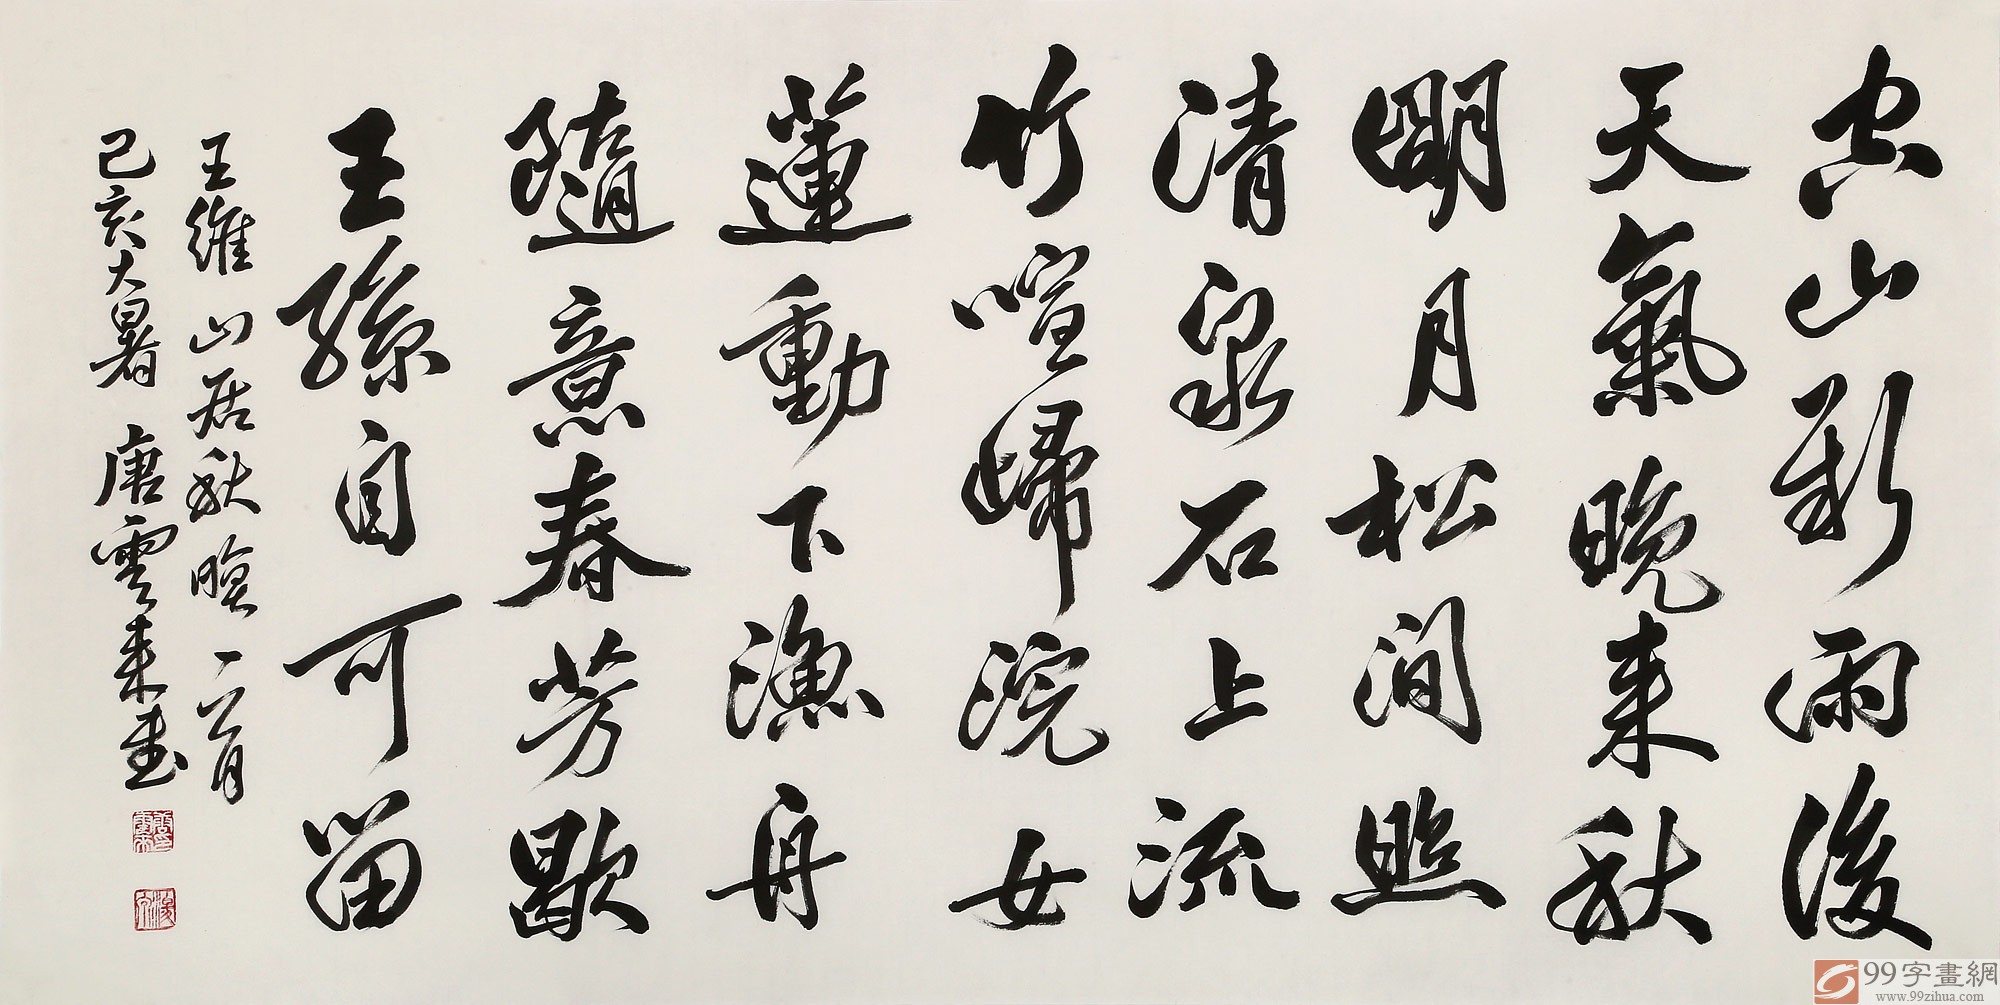 空山新雨後
天氣晚来秋
明月松間照
清泉石上流
竹喧歸浣女
蓮動下漁舟
隨意春芳歇
王孫自可留
王維山居秋暝一首
己亥大暑 唐雲来書
99字畫網
www.99zihua.com